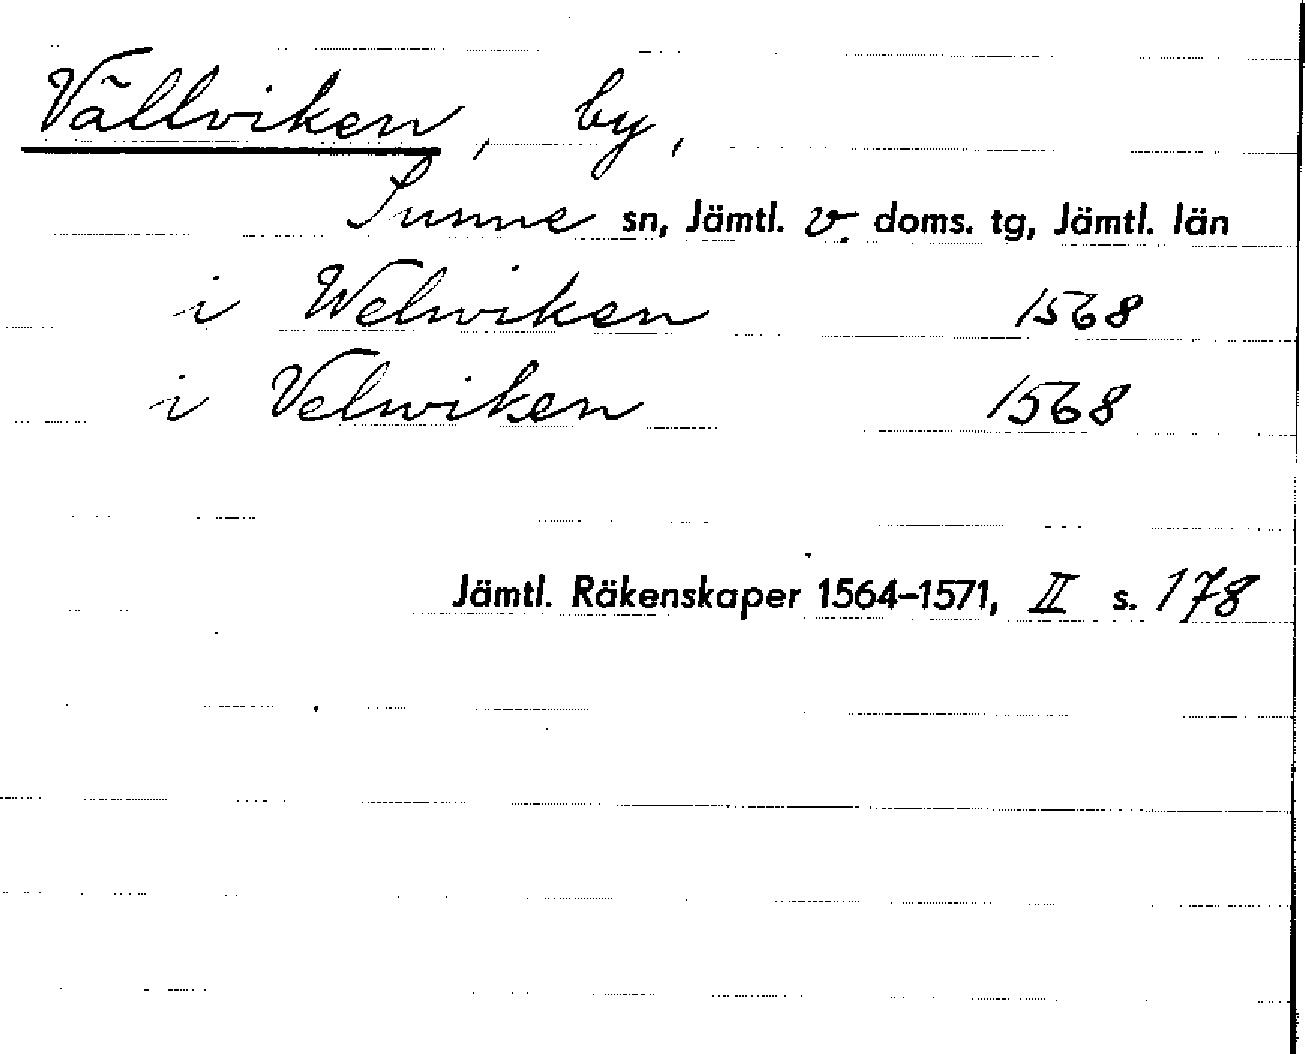 Vällviken, by,
Sunne sn, Jämtl. v. doms. tg, Jämtl. län
i Welwiken 1568
i Velwiken 1568
Jämtl. Räkenskaper 1564-1571, II s. 178